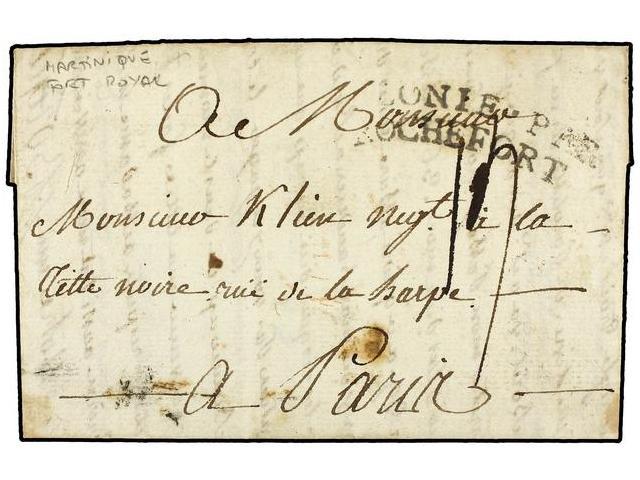 MARTINIQUE
FORT ROYAL
COLONIES PAR
ROCHEFORT
A Monsieur
Monsieur Klien negt. à la
Tette noire rue de la harpe
a Paris